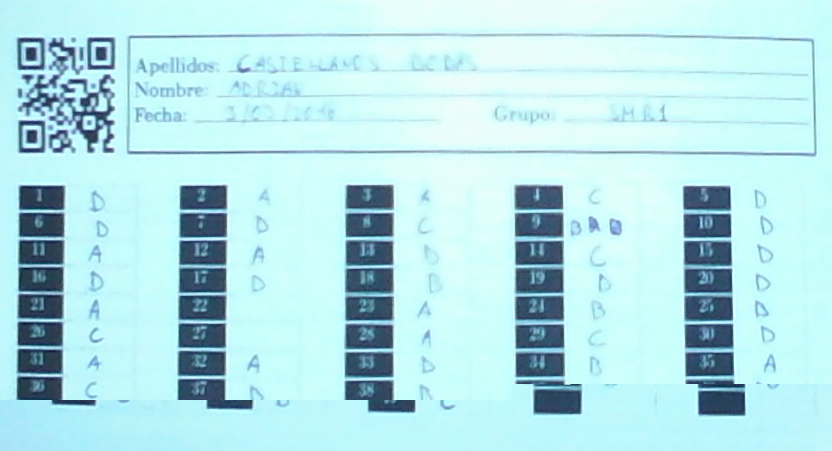 Apellidos: CASTELLANOS
Nombre: ADRIAN
Fecha: Grupo: SMR1
1 D 2 A 3 A 4 C 5 D
6 D 7 D 8 C 9 B A 10 D
11 A 12 A 13 D 14 C 15 D
16 D 17 D 18 B 19 D 20 D
21 A 22 23 A 24 B 25 D
26 C 27 28 A 29 C 30 D
31 A 32 A 33 D 34 B 35 A
36 C 37 D 38